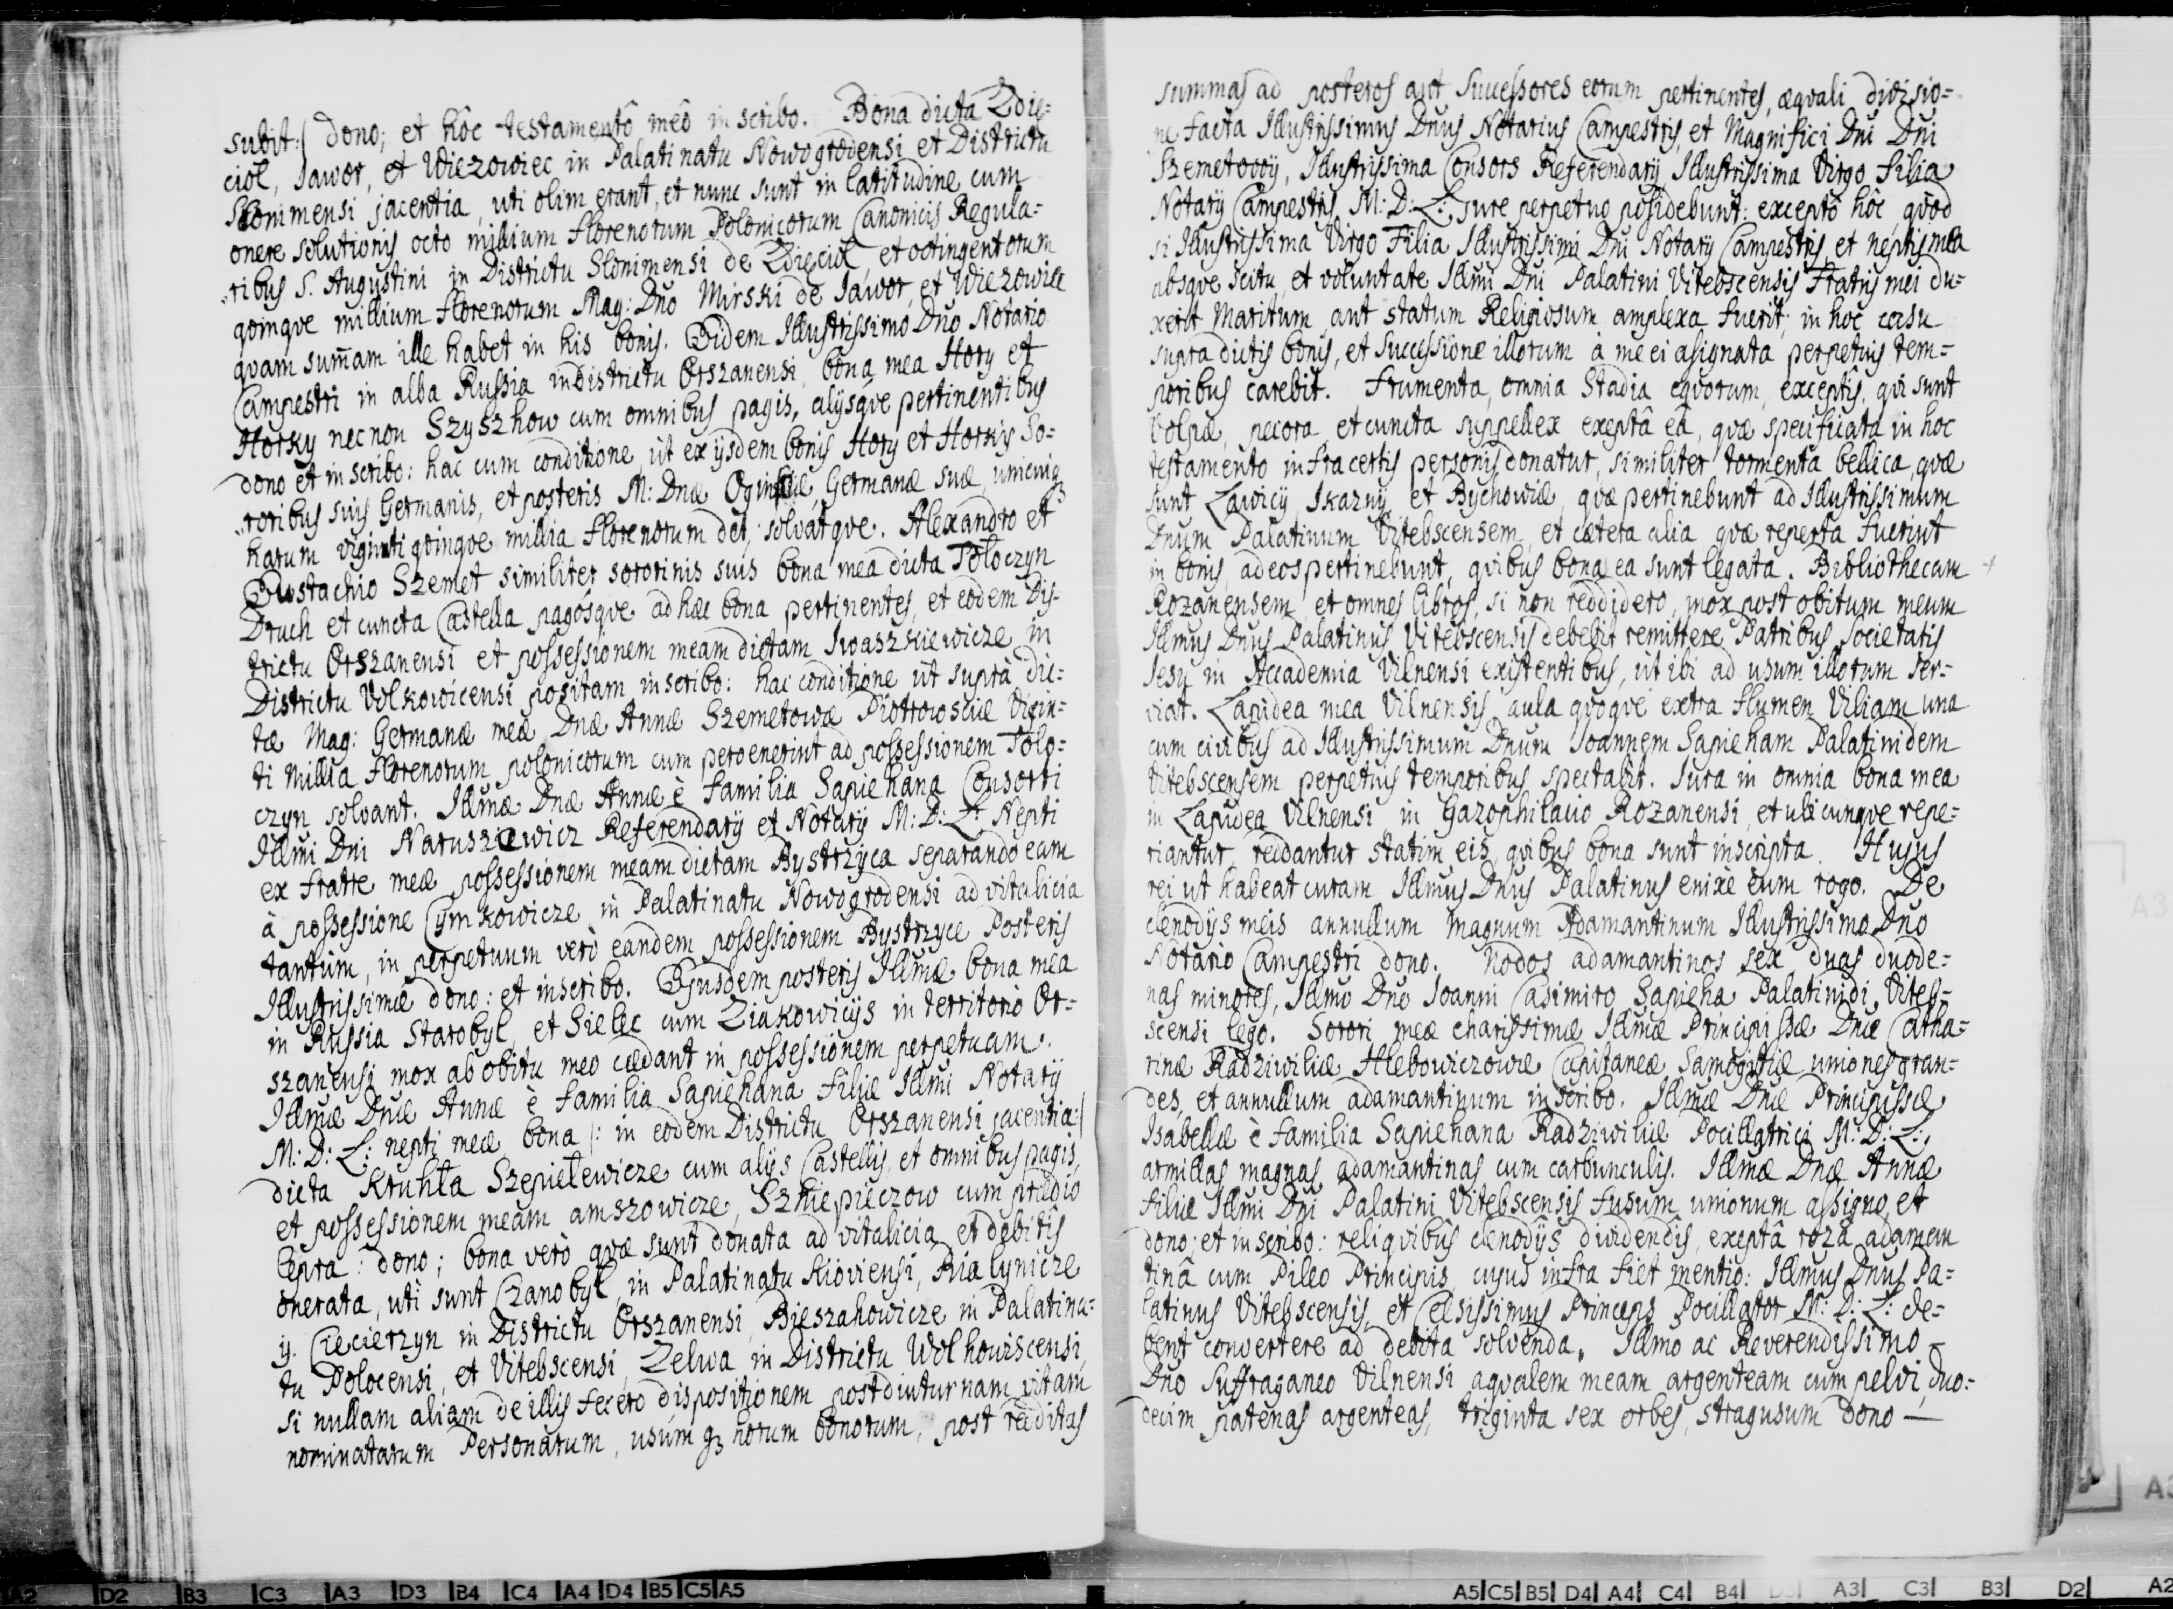 subit:) dono; et hôc testamentô meô inscribo. Bona dicta Zdię=
cioł, Jawor, et Wiezowiec in Palatinatu Nowogrodensi et Districtu
Słonimensi jacentia, uti olim erant, et nunc sunt in latitudine cum
onere solutionis octo millium florenorum Polonicorum Canonicis Regula=
ribus S. Augustini in Districtu Slonimensi de Zdięcioł, et octingentorum
qvinqve millium florenorum Mag: Dño Mirski de Jawor, et Wiezowiec
qvam sum̄am ille habet in his bonis. Eidem Illustrissimo Dño Notario
Campestri in alba Russia in Districtu Orszanensi bona mea Hory et
Horky nec non Szyszhow cum omnibus pagis, alijsqve pertinentibus
dono et inscribo: hac cum conditione, ut ex ijsdem bonis Hory et Horkis So=
roribus suis Germanis, et posteris M: Dnæ Oginsciæ Germanæ suæ, unicuiq;
harum viginti qvinqve millia florenorum det, solvatqve. Alexandro et
Eustachio Szemet similiter sororinis suis bona mea dicta Tołoczyn
Druch et cuncta Castella pagosqve ad hæc bona pertinentes, et eodem Dis-
trictu Orszanensi et possessionem meam dictam Iwaszkiewicze in
Districtu Volkowicensi positam inscribo: hac conditione ut suprà dic=
tæ Mag: Germanæ meæ Dnæ Annæ Szemetowæ Piotrowsciæ Vigin=
ti Millia florenorum polonicorum cum pervenerint ad possessionem Toło=
czyn solvant. Illmæ Dnæ Annæ è familia Sapiehana Consorti
Illmi Dni Naruszewicz Referendarij et Notarij M: D: L: Nepti
ex fratre meæ possessionem meam dictam Bystrzyca separando eam
à possessione Cymkowicze in Palatinatu Nowogrodensi ad vitalicia
tantùm, in perpetuum verò eandem possessionem Bystrzyce Posteris
Illustrissimæ dono: et inscribo. Ejusdem posteris Illmæ bona mea
in Russia Starobyl, et Sielec cum Ziakowicijs in territorio Or=
szanensi mox ab obitu meo cædant in possessionem perpetuam.
Illmæ Dnæ Annæ è familia Sapiehana filiæ Illmi Notarij
M: D: L: nepti meæ bona (: in eodem Districtu Orszanensi jacentia:)
dicta Kruhła Szepielewicze cum alijs Castellis et omnibus pagis,
et possessionem meam amszowicze, Szniepieczow cum prædio
Lepra: dono; bona verò qvæ sunt donata ad vitalicia et debitis
onerata, uti sunt Czanobyl in Palatinatu Kioviensi, Białynicze
ij. Ciecierzyn in Districtu Orszanensi, Bieszahowicze in Palatina=
tu Polocensi, et Vitebscensi, Zelwa in Districtu Wolhowiscensi,
si nullam aliam de illis fecero dispositionem postdiuturnam vitam
nominatarum Personarum, usúm q; horum bonorum, post redditas
summas ad posteros aut Successores eorum pertinentes, æqvali divisio=
ne facta Illustrissimus Dnus Notarius Campestris, et Magnifici Dni Dni
Szemetovij, Illustrissima Consors Referendarij Illustrissima Virgo filia
Notarij Campestris M: D: L: jure perpetuo posidebunt: exceptô hôc qvòd
si Illustrissima Virgo Filia Illustrissimi Dni Notarij Campestris, et neptis mea
absqve scitu, et voluntate Illmi Dni Palatini Vitebscensis Fratris mei du=
xerit Maritum, aut statum Religiosum amplexa fuerit; in hoc casu
supra dictis bonis, et Successione illorum à me ei asignata perpetuis tem=
poribus carebit. Frumenta, omnia Stadia eqvorum, exceptîs, qvi sunt
bolpæ, pecora, et cuncta suppellex exeptâ eâ, qvæ specificata in hoc
testamento infra certis personis donatur, similiter tormenta bellica, qvæ
sunt Lawicij Ikazny et Bychowiæ, qvæ pertinebunt ad Illustrissimum
Dnum Palatinum Vitebscensem, et cætera alia qvæ reperta fuerint
in bonis, ad eos pertinebunt, qvibus bona ea sunt legata. Bibliothecam +
Rozanensem, et omnes libros, si non reddidero, mox post obitum meum
Illmus Dnus Palatinus Vitebscensis debebit remittere Patribus Societatis
Jesu in Accademia Vilnensi existentibus, ut ibi ad usum illorum ser=
viat. Lapidea mea Vilnensis, aula qvoqve extra flumen Viliam una
cum civibus ad Illustrissimum Dnum Joannem Sapieham Palatinidem
Vitebscensem perpetuis temporibus spectabit. Jura in omnia bona mea
in Lapidea Vilnensi in Gazophilacio Rozanensi, et ubicunqve repe=
riantur, reddantur statim eis, qvibus bona sunt inscripta. Hujus
rei ut habeat curam Illmus Dnus Palatinus enixè eum rogo. De
clenodijs meis annullum magnum Adamantinum Illustrissimo Dno
Notario Campestri dono. Nodos adamantinos sex duas duode=
nas minores, Illmo Dno Joanni Casimiro Sapieha Palatinidi Viteb=
scensi lego. Sorori meæ charissimæ Illmæ Principissæ Dnæ Catha=
rinæ Radziwiliæ Hlebowiczowæ Capitaneæ Samogitiæ uniones gran=
des, et annullum adamantinum inscribo. Illmæ Dnæ Principissæ
Isabellæ è familia Sapiehana Radziwiliæ Pocillatrici M: D: L:,
armillas magnas adamantinas cum carbunculis. Illmæ Dnæ Annæ
filiæ Illmi Dni Palatini Vitebscensis fusum unionum assigno, et
dono; et inscribo: reliqvibûs clenodijs dividendîs, exeptâ rozâ adaman
tinâ cum Pileo Principis, cujus infra fiet mentio: Illmus Dnus Pa=
latinus Vitebscensis, et Celsissimus Princeps Pocillator M: D: L: de=
bent convertere ad debita solvenda. Illmo ac Reverendissimo
Dno Suffraganeo Vilnensi aqvalem meam argenteam cum pelvi, duo=
decim patenas argenteas, triginta sex orbes, stragusum dono —